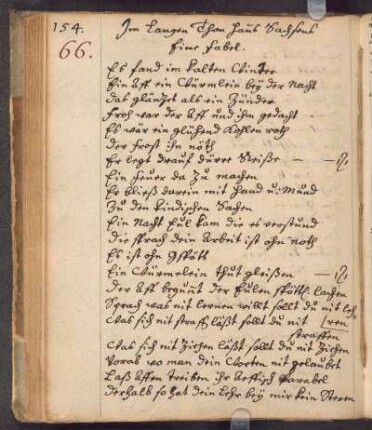 154.
Im Langen Thon Hans Sachsens
66.
Eine Fabel.
Es fand im kalten Winter
Ein Aff ein Würmlein bey der Nacht
das gläntzt als ein Zünder
Froh war der Aff und ihm gedacht
Es wär ein glühend Kohlen roth
der frost ihn nöth
Er legt drauf dürre Reißer
Ein feuer da zu machen
Er bließ darein mit Hand u: Mund
Zu den kindischen Sachen
Ein Nacht Eul kam die es verstund
die sprach dein Arbeit ist ohn noth
Es ist ohn Gspött
Ein Würmelein thut gleißen
der Aff begunt der Eulen spöttl. lachen
Sprach was nit lernen willt sollt du nit leh-
ren
Was sich nit straffn läßt sollt du nit
straffen
Was sich nit Ziehen läßt sollt du nit Ziehen
Vorab wo man dein Worten nit gelaubet
Laß Affen treiben ihr äffisch Parabel
derhalb so hat dein Lehr bey mir kein